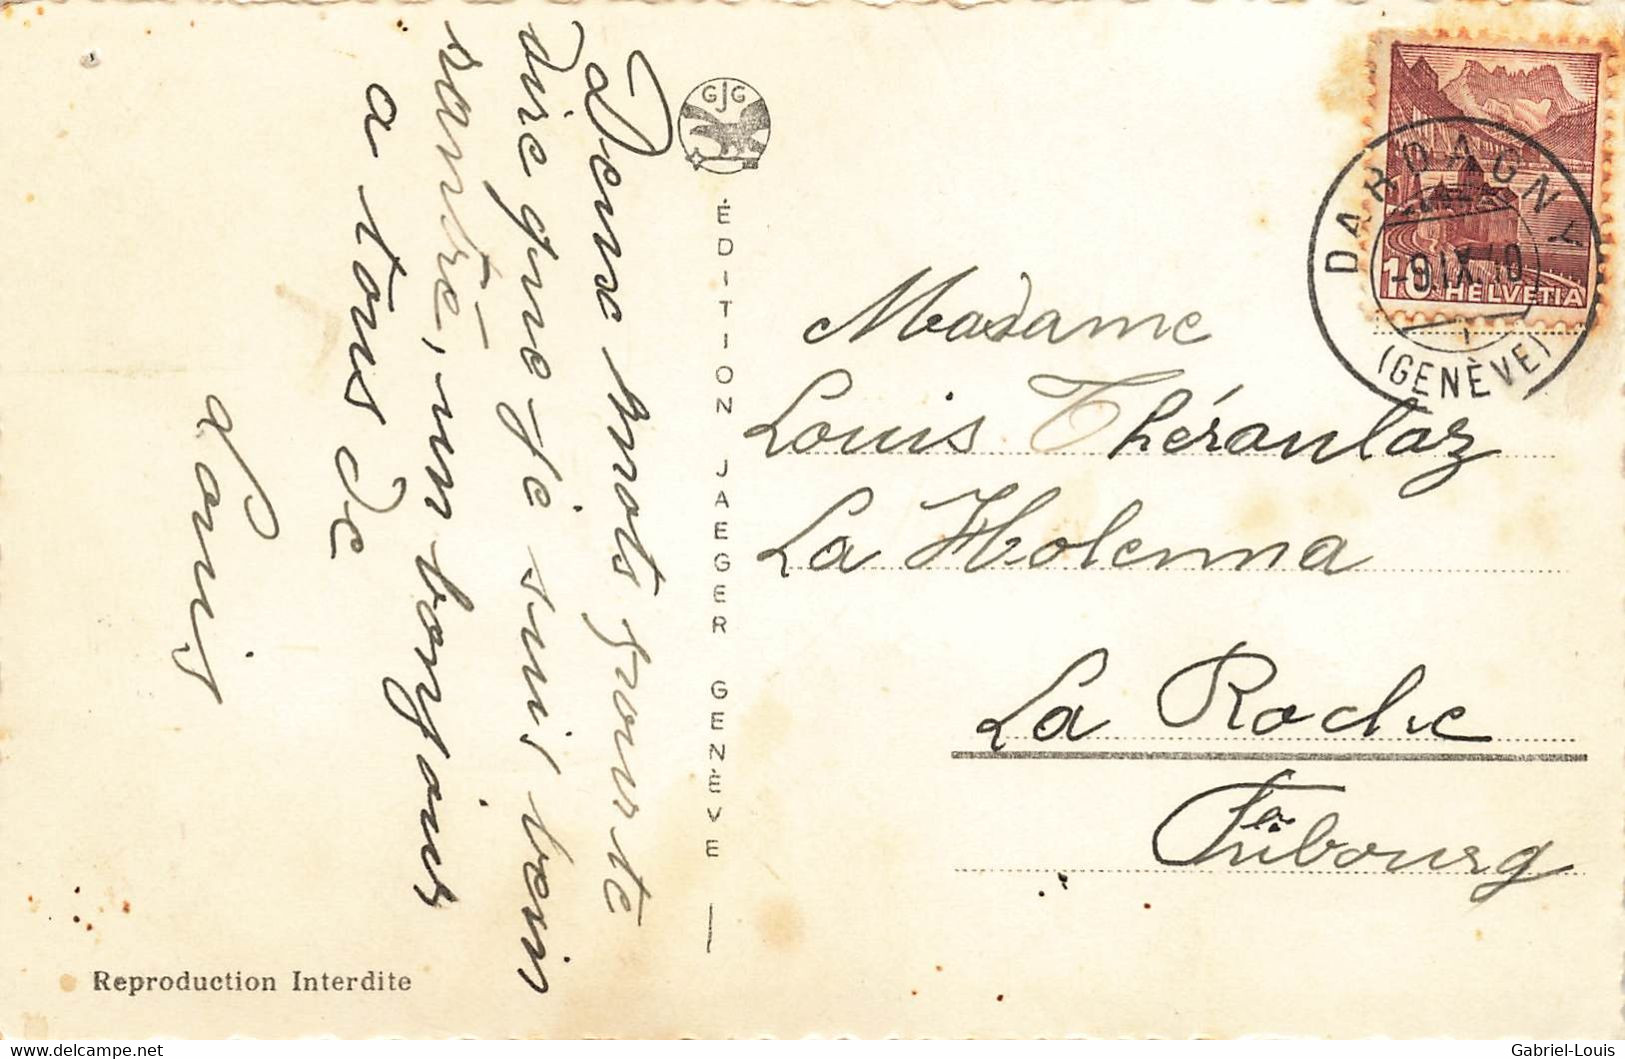 Deux mots pour te
dire que je suis bein
rantré, um bonjour
a tous de
Louis
GJG
ÉDITION JAEGER GENÈVE
Reproduction Interdite
DARDAGNY
-9.IX.40
(GENÈVE)
10 HELVETIA
Madame
Louis Théraulaz
La Holenna
La Roche
Fribourg
© delcampe.net
Gabriel-Louis